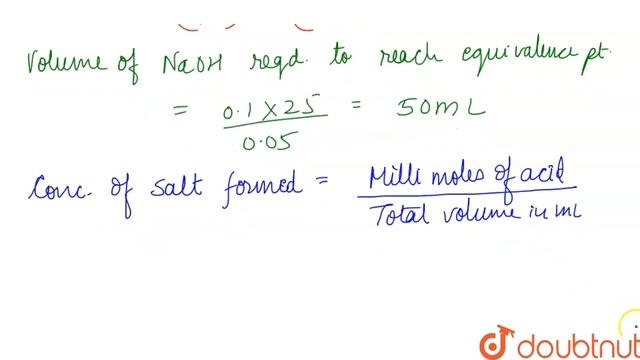 Volume of NaOH reqd. to reach equivalence pt.
= 0.1 X 25 / 0.05 = 50mL
Conc. of salt formed = Milli moles of acid / Total volume in mL
doubtnut